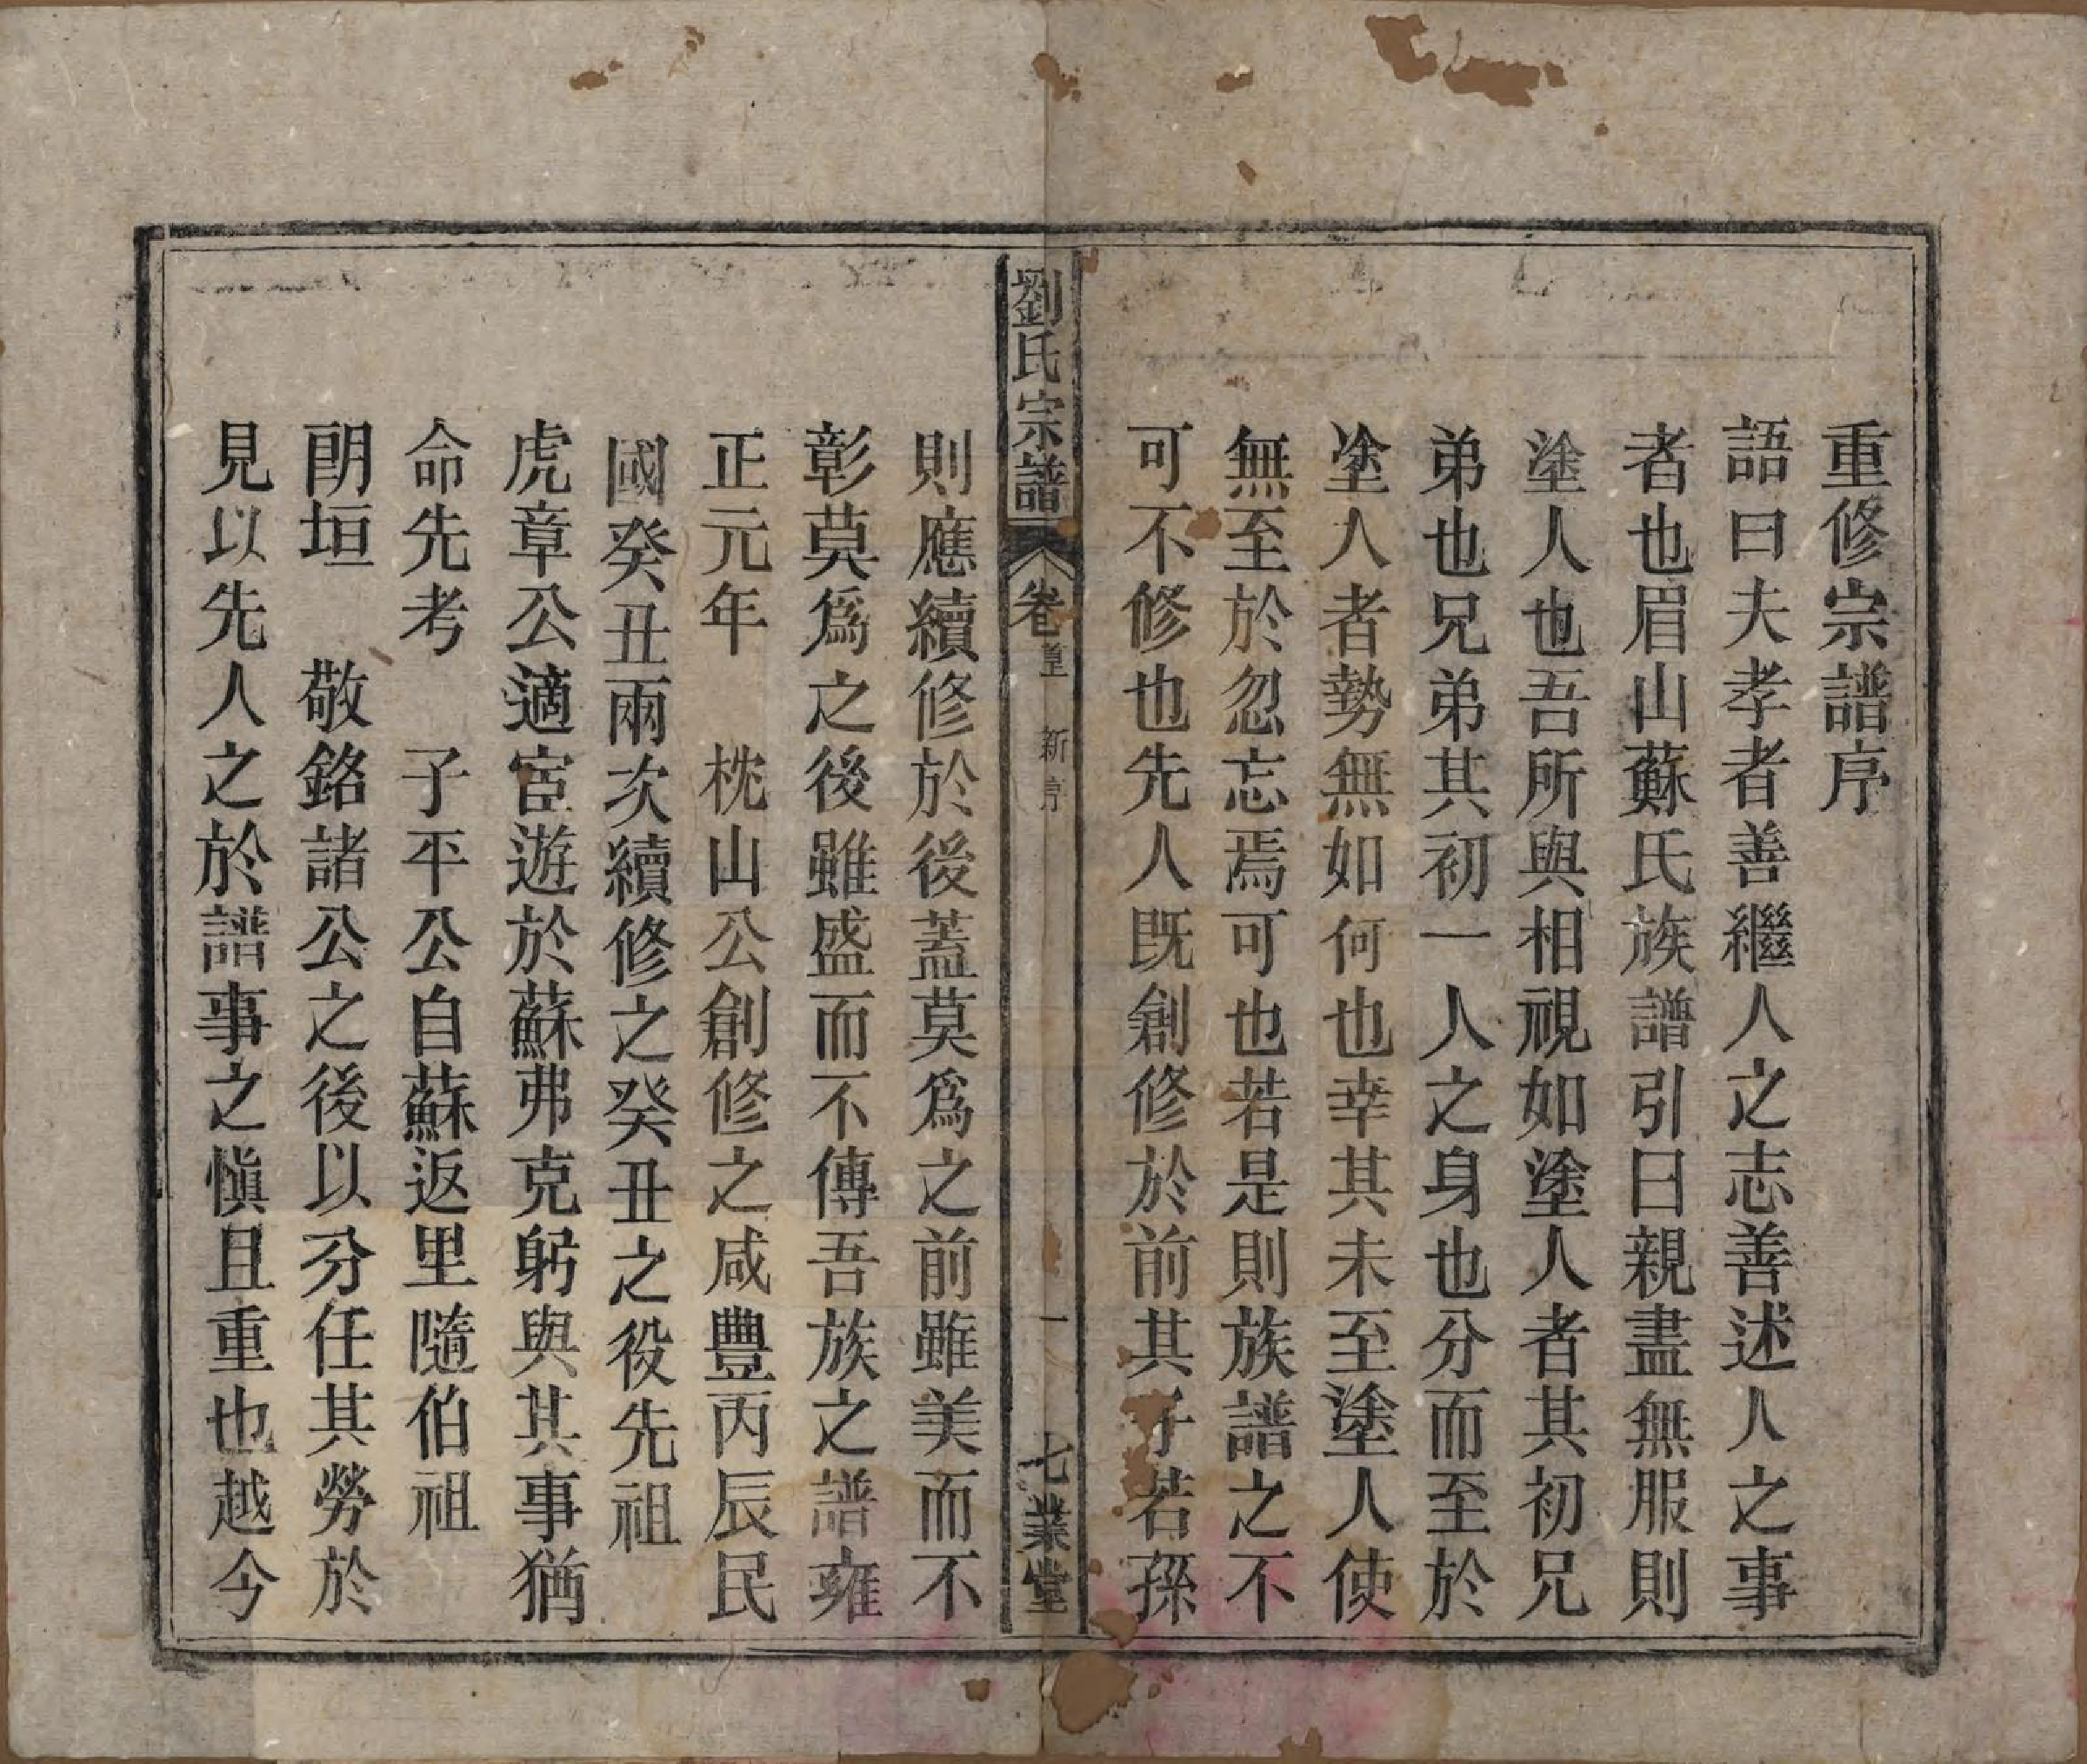 重修宗譜序
語曰夫孝者善繼人之志善述人之事
者也眉山蘇氏族譜引曰親盡無服則
塗人也吾所與相視如塗人者其初兄
弟也兄弟其初一人之身也分而至於
塗人者勢無如何也幸其未至塗人使
無至於忽忘焉可也若是則族譜之不
可不修也先人既創修於前其子若孫
劉氏宗譜 卷 新序 一 七業堂
則應續修於後蓋莫爲之前雖美而不
彰莫爲之後雖盛而不傳吾族之譜雍
正元年 枕山公創修之咸豐丙辰民
國癸丑兩次續修之癸丑之役先祖
虎章公適宦遊於蘇弗克躬與其事猶
命先考 子平公自蘇返里隨伯祖
朗垣 敬銘諸公之後以分任其勞於
見以先人之於譜事之愼且重也越今